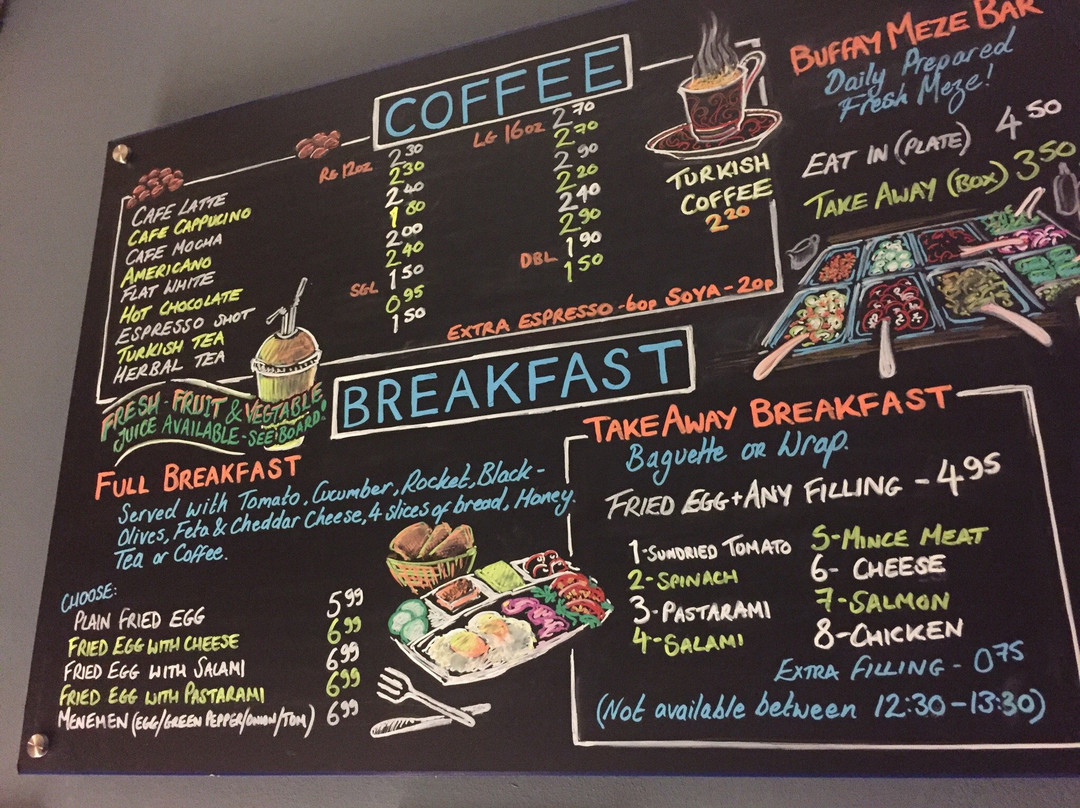 COFFEE
RG 12oz LG 16oz
CAFE LATTE 2 30 2 70
CAFE CAPPUCINO 2 30 2 70
CAFE MOCHA 2 40 2 90
AMERICANO 1 80 2 20
FLAT WHITE 2 00 2 40
HOT CHOCOLATE 2 40 2 90
ESPRESSO SHOT SGL 1 50 DBL 1 90
TURKISH TEA 0 95 1 50
HERBAL TEA 1 50
EXTRA ESPRESSO - 60p SOYA - 20p
TURKISH
COFFEE
2 20
BUFFAY MEZE BAR
Daily Prepared
Fresh Meze!
EAT IN (PLATE) 4 50
TAKE AWAY (BOX) 3 50
FRESH - FRUIT & VEGTABLE
JUICE AVAILABLE - SEE BOARD!
BREAKFAST
FULL BREAKFAST
Served with Tomato, Cucumber, Rocket, Black-
Olives, Feta & Cheddar Cheese, 4 slices of bread, Honey.
Tea or Coffee.
CHOOSE:
PLAIN FRIED EGG 5 99
FRIED EGG WITH CHEESE 6 99
FRIED EGG WITH SALAMI 6 99
FRIED EGG WITH PASTARAMI 6 99
MENEMEN (EGG/GREEN PEPPER/ONION/TOM) 6 99
TAKE AWAY BREAKFAST
Baguette OR Wrap.
FRIED EGG + ANY FILLING - 4 95
1 - SUNDRIED TOMATO
2 - SPINACH
3 - PASTARAMI
4 - SALAMI
5 - MINCE MEAT
6 - CHEESE
7 - SALMON
8 - CHICKEN
EXTRA FILLING - 0 75
(Not available between 12:30 - 13:30)